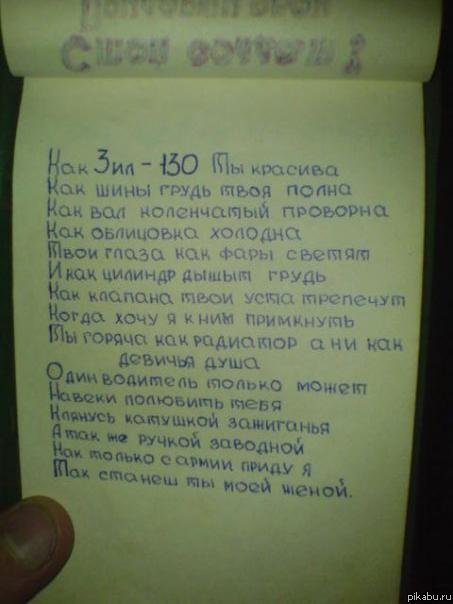 Как Зил - 130 Ты красива
Как шины грудь твоя полна
Как вал коленчатый проворна
Как облицовка холодна
Твои глаза как фары светят
И как цилиндр дышыт грудь
Как клапана твои уста трепечут
Когда хочу я к ним примкнуть
Ты горяча как радиатор а ни как
девичья душа
Один водитель только может
Навеки полюбить тебя
Клянусь катушкой зажиганья
А так же ручкой заводной
Как только с армии приду я
Так станеш ты моей женой.
pikabu.ru